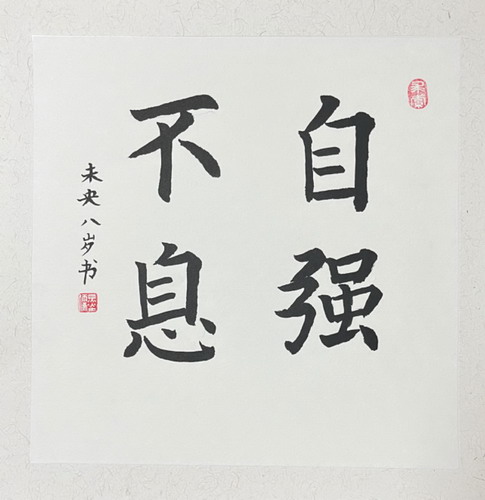 自强
不息
未央八岁书